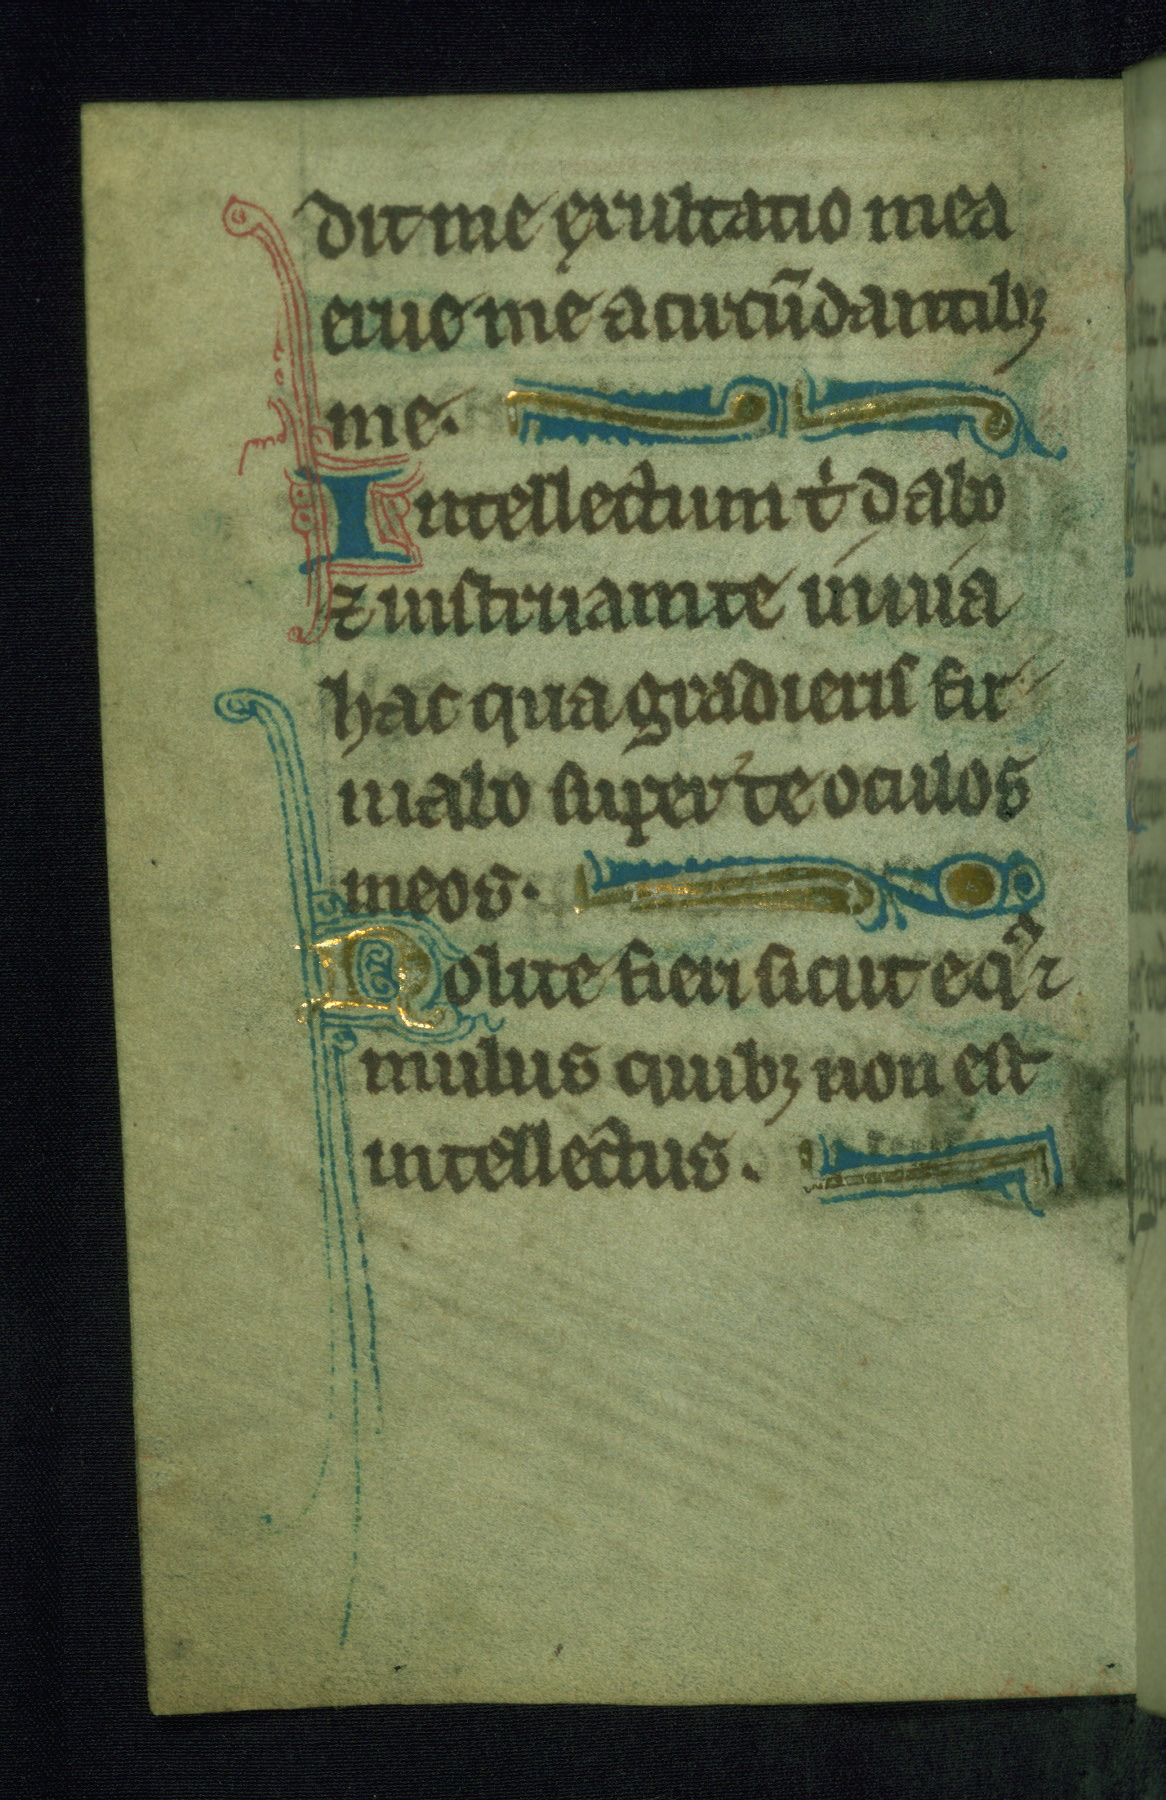 dit me exultatio mea
erue me a circūdantibꝫ
me.
Intellectum t̓ dabo
⁊ instruam te in uia
hac qua gradieris fir
mabo super te oculos
meos.
Nolite fieri sicut eqͣꝛ
mulus quibꝫ non est
intellectus.